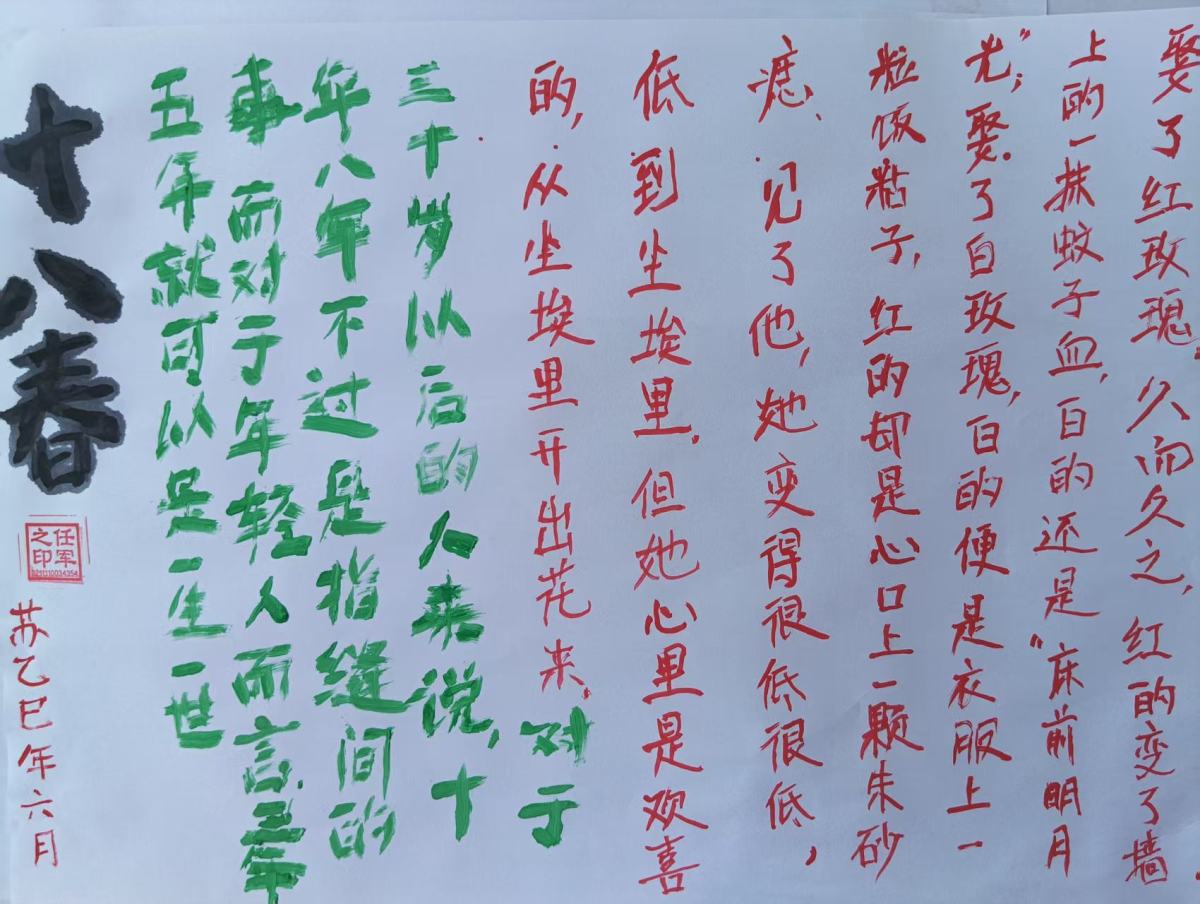 娶了红玫瑰,久而久之,红的变了墙
上的一抹蚊子血,白的还是“床前明月
光”;娶了白玫瑰,白的便是衣服上一
粒饭粘子,红的却是心口上一颗朱砂
痣、见了他,她变得很低很低,
低到尘埃里.但她心里是欢喜
的,从尘埃里开出花来、对于
三十岁以后的人来说,十
年八年不过是指缝间的
事 而对于年轻人而言,三年
五年就可以是一生一世
十八春
任军
之印
苏乙巳年六月